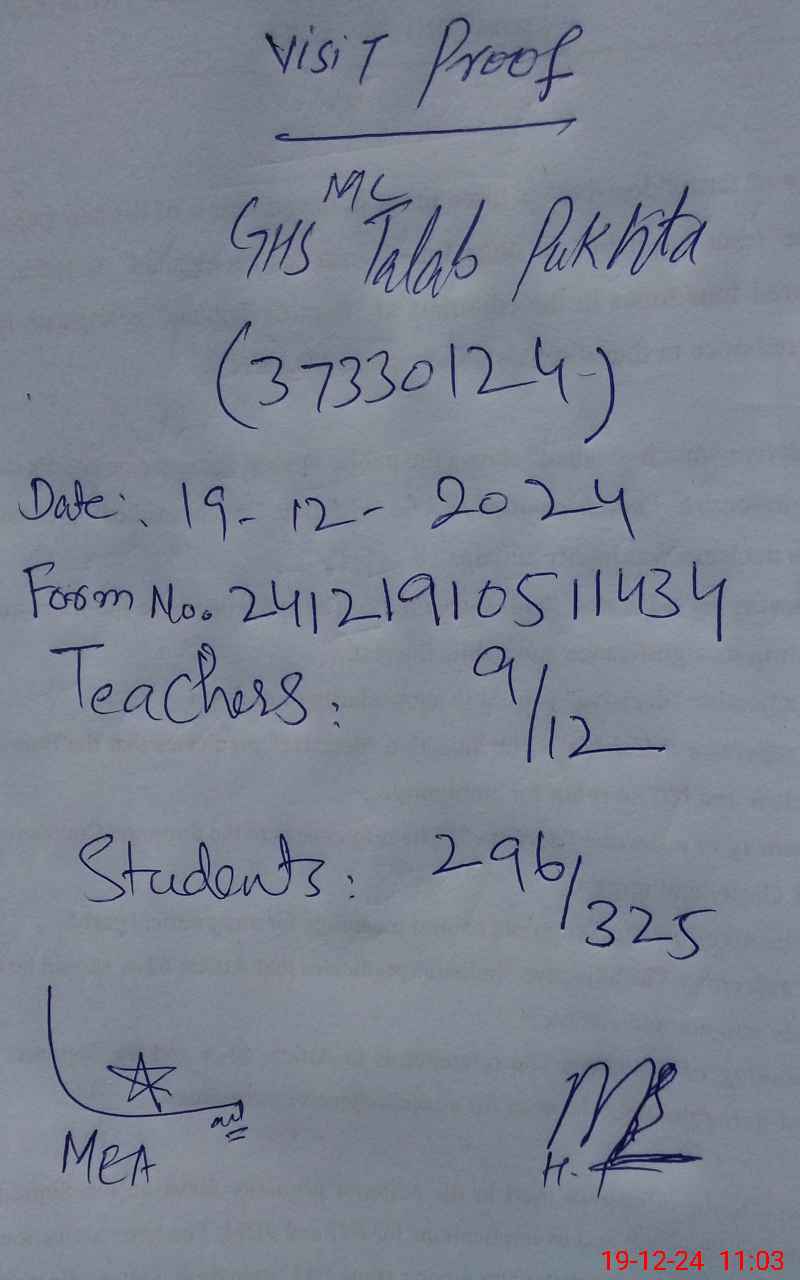 Visit Proof
GHS MC Talab Pukhta
(37330124)
Date: 19-12-2024
Form No. 24121910511434
Teachers: 9/12
Students: 296/325
MEA
H.
19-12-24 11:03